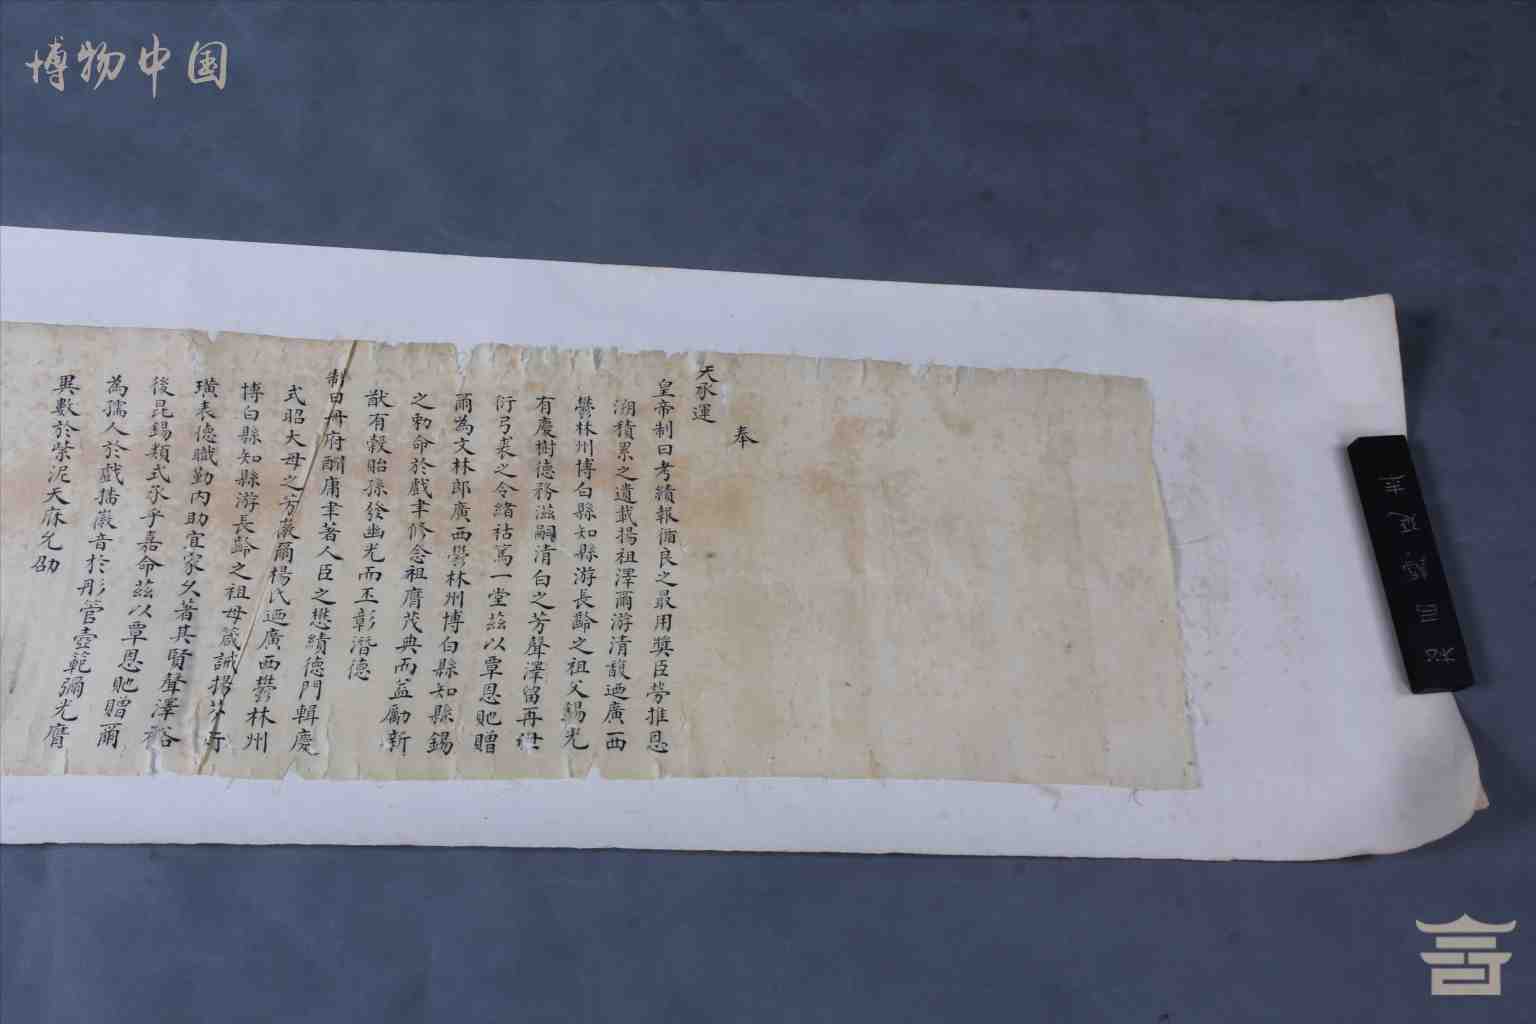 博物中国
奉
天承運
皇帝制曰考績報循良之最用獎臣勞推恩
溯積累之遺載揚祖澤爾游清馥迺廣西
鬱林州博白縣知縣游長齡之祖父錫光
有慶樹德務滋嗣清白之芳聲澤留再世
衍弓裘之令緒祜篤一堂茲以覃恩貤贈
爾為文林郎廣西鬱林州博白縣知縣錫
之勅命於戲聿修念祖膺茂典而益勵新
猷有穀貽孫發幽光而丕彰潛德
制曰冊府酬庸聿著人臣之懋績德門輯慶
式昭大母之芳徽爾楊氏迺廣西鬱林州
博白縣知縣游長齡之祖母箴誡揚芬珩
璜表德職勤內助宜家久著其賢聲澤裕
後昆錫類式承乎嘉命茲以覃恩貤贈爾
為孺人於戲播徽音於彤管壼範彌光膺
異數於紫泥天庥允劭